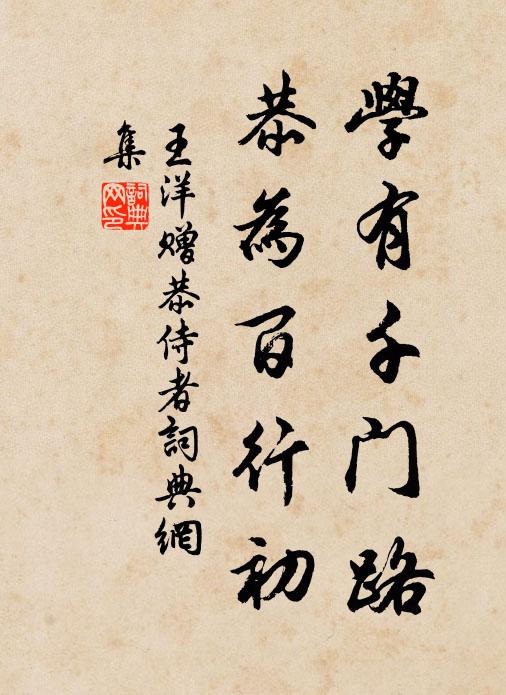 學有千门路
恭為百行初
王洋赠恭侍者詞典網
集
詞典网印